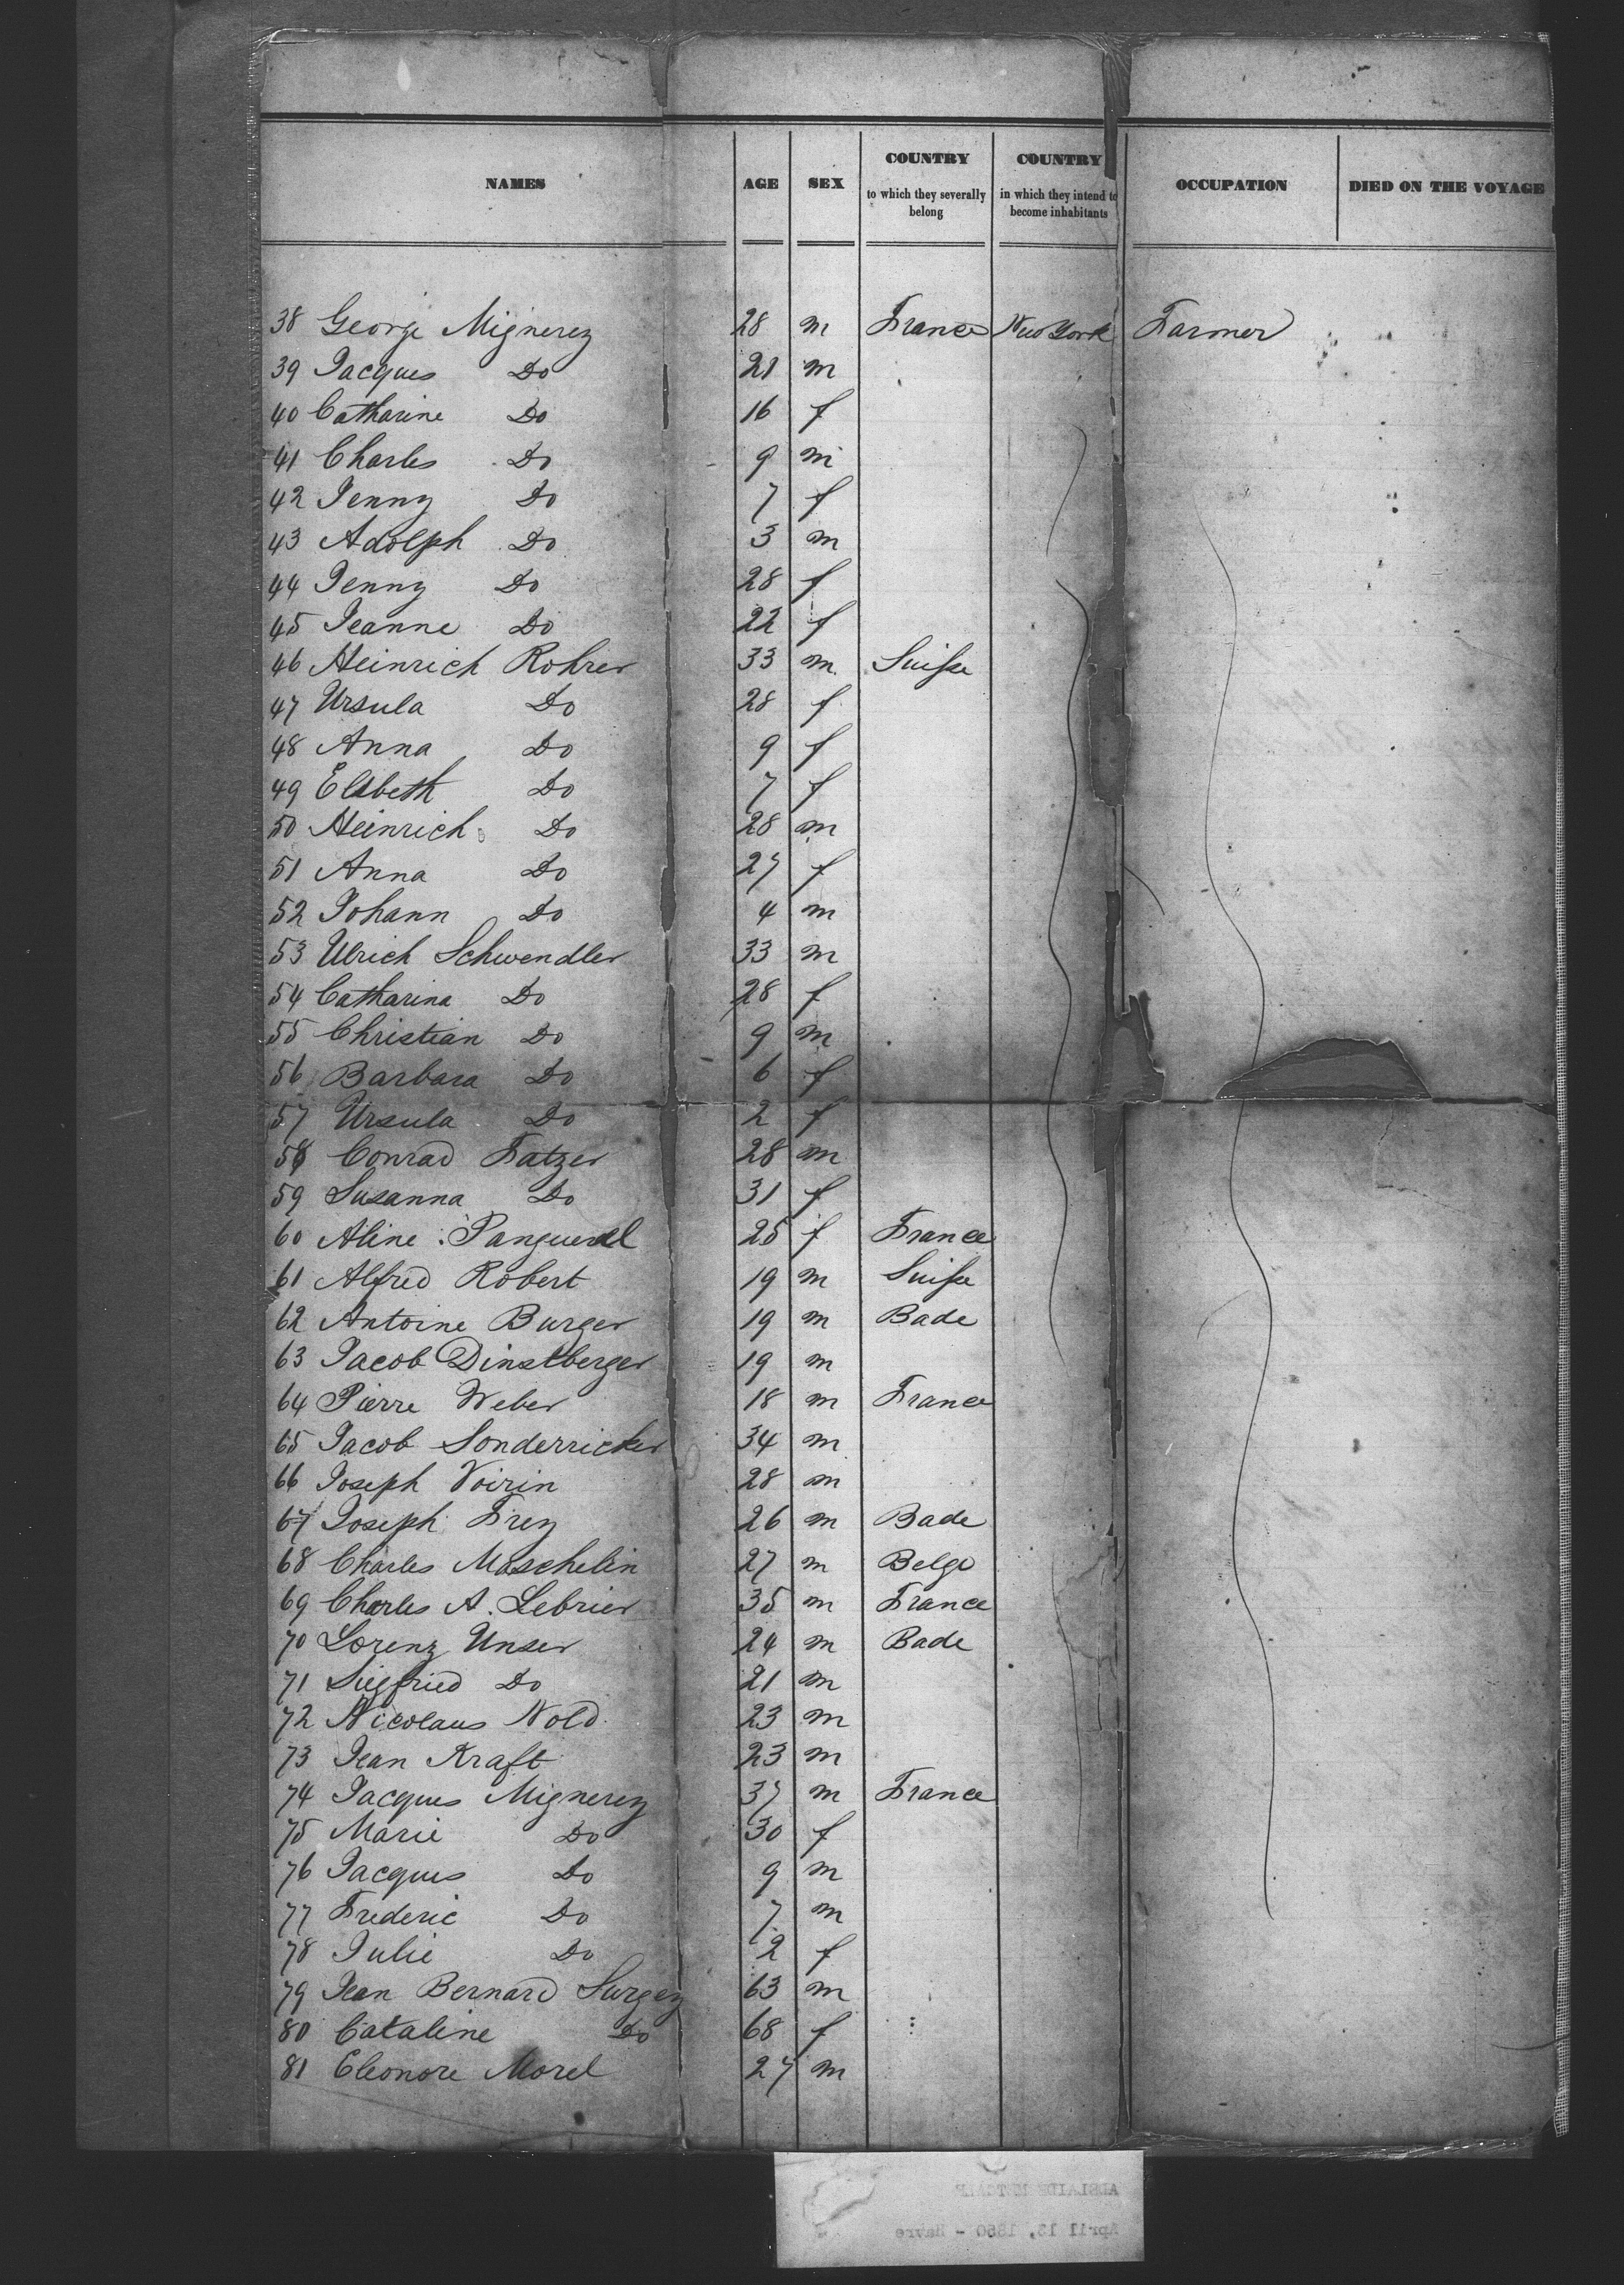 NAMES AGE SEX COUNTRY to which they severally belong COUNTRY in which they intend to become inhabitants OCCUPATION DIED ON THE VOYAGE
38 George Mignerey 28 m France New York Farmer
39 Jacques Do 21 m
40 Catharine Do 16 f
41 Charles Do 9 m
42 Jenny Do 7 f
43 Adolph Do 3 m
44 Jenny Do 28 f
45 Jeanne Do 22 f
46 Heinrich Rohrer 33 m Suisse
47 Ursula Do 28 f
48 Anna Do 9 f
49 Elsbeth Do 7 f
50 Heinrich Do 28 m
51 Anna Do 27 f
52 Johann Do 4 m
53 Ulrich Schwendler 33 m
54 Catharina Do 28 f
55 Christian Do 9 m
56 Barbara Do 6 f
57 Ursula Do 2 f
58 Conrad Fatzer 28 m
59 Susanna Do 31 f
60 Aline 25 f France
61 Alfred Robert 19 m Suisse
62 Antoine Burger 19 m Bade
63 Jacob Dinstberger 19 m
64 Pierre Weber 18 m France
65 Jacob Sonderricker 34 m
66 Joseph Voirin 28 m
67 Joseph Frey 26 m Bade
68 Charles Maschelin 27 m Belge
69 Charles A. Lebrier 35 m France
70 Lorenz Unser 24 m Bade
71 Siegfried Do 21 m
72 Nicolaus Nold 23 m
73 Jean Kraft 23 m
74 Jacques Mignerey 37 m France
75 Marie Do 30 f
76 Jacques Do 9 m
77 Frederic Do 7 m
78 Julie Do 2 f
79 Jean Bernard Surgey 63 m
80 Cataline Do 68 f
81 Eleonore Morel 27 m
ADELAIDE METCALF
April 13, 1860 - Havre